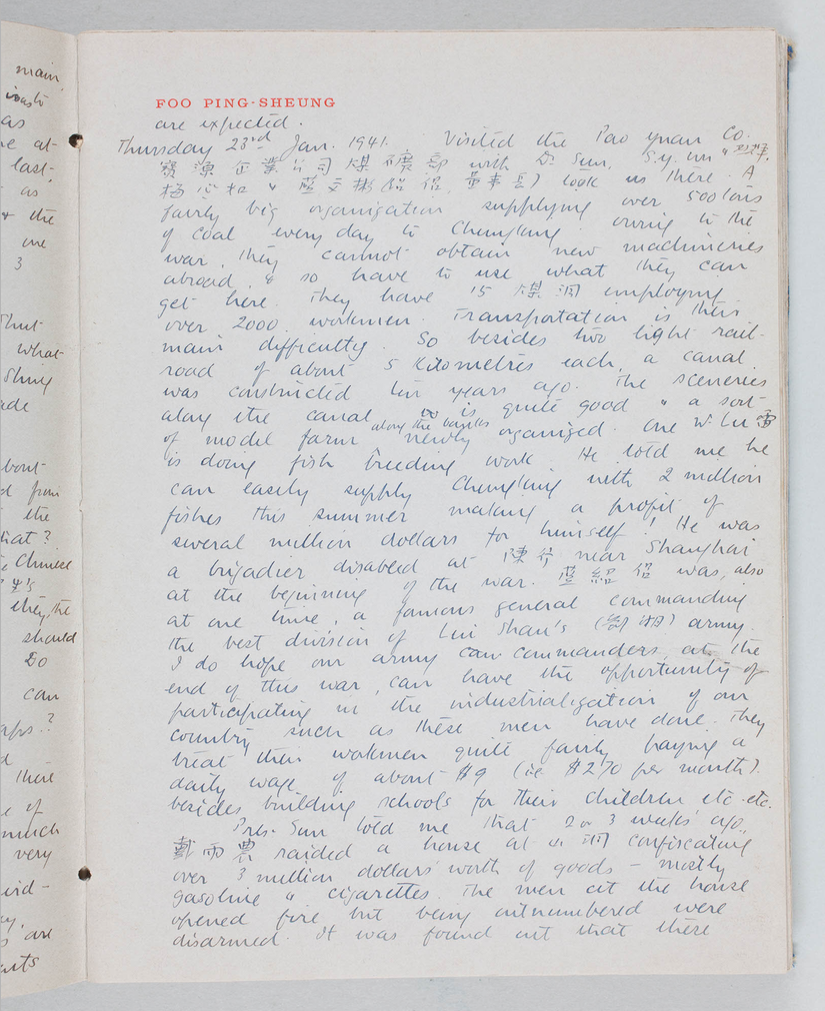 main,
as
e at-
last-
as
& the
one
3
what
Shing
ade
bout-
d from
the
that?
Chinese
they, the
should
Do
can
there
e of
much
very
vid-
are
FOO PING-SHEUNG
are expected.
Thursday 23rd Jan. 1941. Visited the Pao Yuan Co.
寶源企業公司煤礦部 with Dr. Sun, S.Y. Wu "
" 藍文彬 紹侶, 董事長) took us there. A
fairly big organization supplying over 500 tons
of coal every day to Chungking. Owing to the
war, they cannot obtain new machineries
abroad, & so have to use what they can
get here. They have 15 煤洞 employing
over 2000 workmen. Transportation is their
main difficulty. So besides two light rail-
road of about 5 kilometres each, a canal
was constructed ten years ago. The sceneries
along the canal is quite good " a sort
of model farm along the banks newly organized. One W. Lu 雷
is doing fish breeding work. He told me he
can easily supply Chungking with 2 million
fishes this summer making a profit of
several million dollars for himself! He was
a brigadier disabled at 陳行 near Shanghai
at the beginning of the war. 藍紹侶 was, also
at one time, a famous general commanding
the best division of Liu Shan's (劉湘) army.
I do hope our army commanders, at the
end of this war, can have the opportunity of
participating in the industrialization of our
country such as these men have done. They
treat their workmen quite fairly paying a
daily wage of about $9 (ie $270 per month).
besides building schools for their children etc. etc.
Pres. Sun told me that 2 or 3 weeks ago,
戴雨農 raided a house at 洞 confiscating
over 3 million dollars' worth of goods – mostly
gasoline " cigarettes. The men at the house
opened fire but being outnumbered were
disarmed. It was found out that these